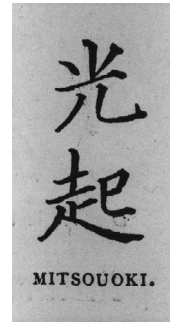 光
起
MITSOUOKI.